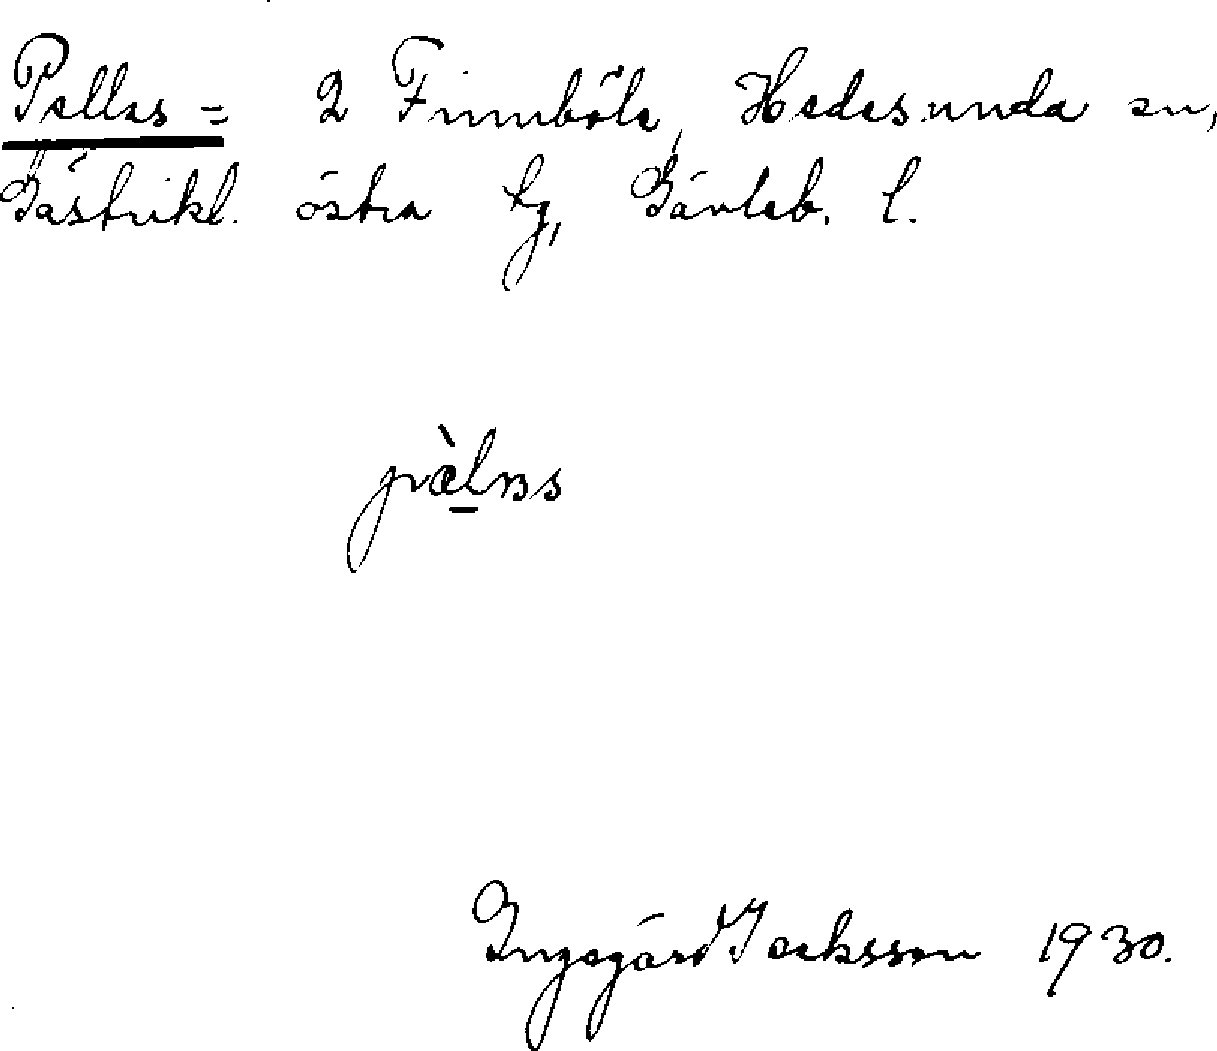 Pelles = 2 Finnböle, Hedesunda sn,
Gästrikl. östra tg, Gävleb. l.
pæ̀l̲ɜs
Ingegärd Isaksson 1930.